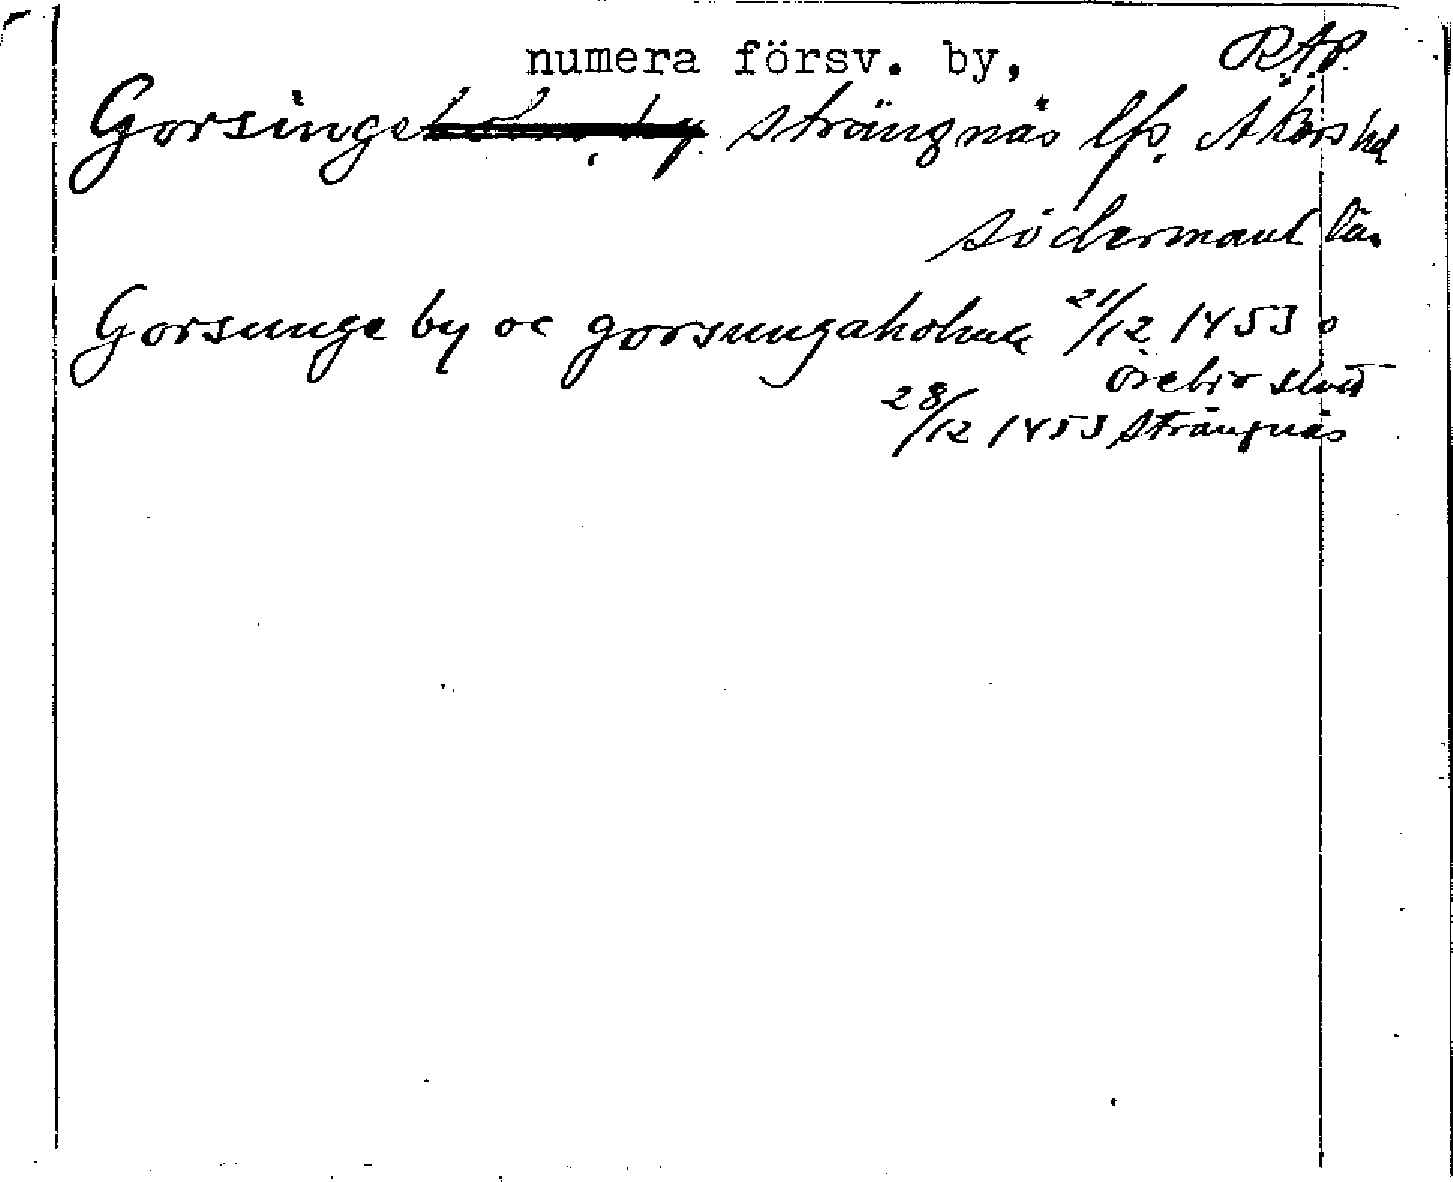 numera försv. by, R.A.P.
Gorsingeholm, by. Strängnäs lfs. Åkers hd
Södermanl län
Gorsunge by oc gorsungaholma 21/12 1453 o
Örebro slott
28/12 1453 Strängnäs